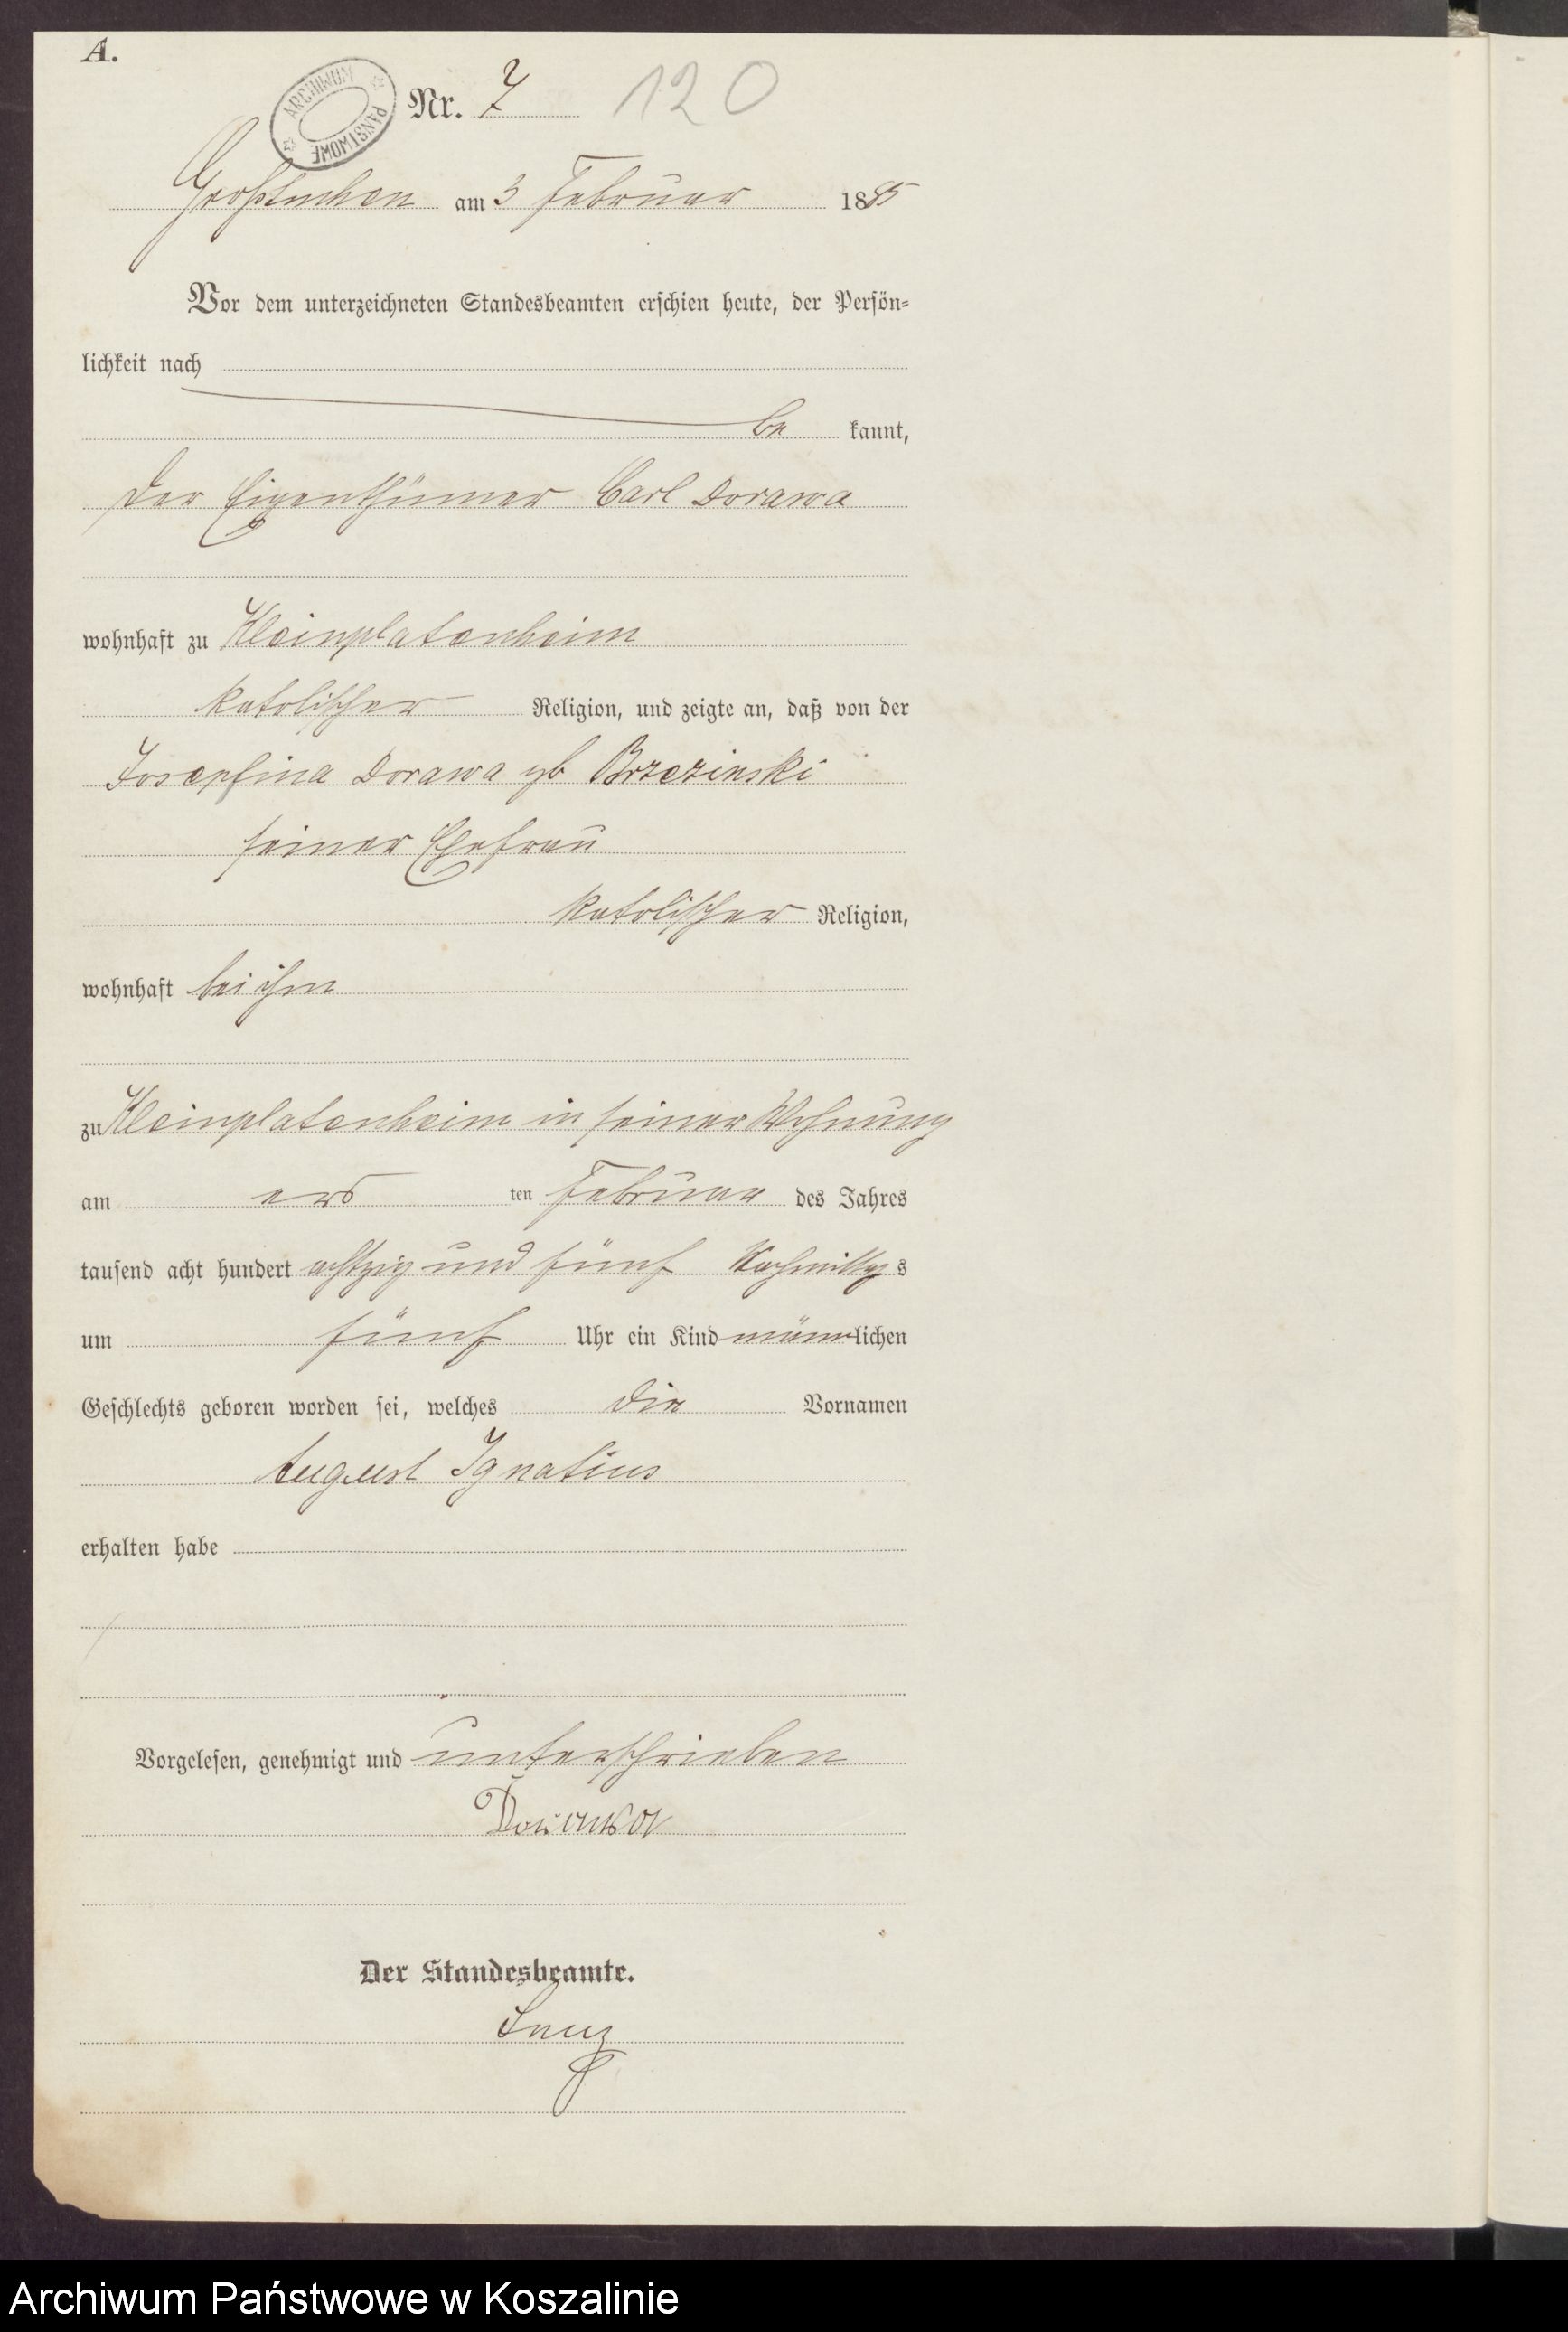 A.
ARCHIWUM PAŃSTWOWE
Nr. 7 120
Großtuchen am 3 Februar 1885
Vor dem unterzeichneten Standesbeamten erschien heute, der Persön-
lichkeit nach
be kannt,
der Eigenthümer Carl Dorawa
wohnhaft zu Kleinplatenheim
katolischer Religion, und zeigte an, daß von der
Josepfina Dorawa gb Brzezinski
seiner Ehefrau
katolischer Religion,
wohnhaft bei ihm
zu Kleinplatenheim in seiner Wohnung
am ers ten Februar des Jahres
tausend acht hundert achtzig und fünf Nachmittags
um fünf Uhr ein Kind männlichen
Geschlechts geboren worden sei, welches die Vornamen
August Ignatius
erhalten habe
Vorgelesen, genehmigt und unterschrieben
Der Standesbeamte.
Archiwum Państwowe w Koszalinie